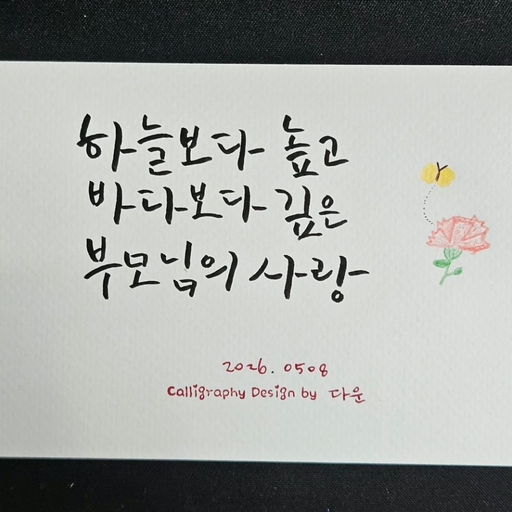 하늘보다 높고
바다보다 깊은
부모님의 사랑
2026. 0508
Calligraphy Design by 다운